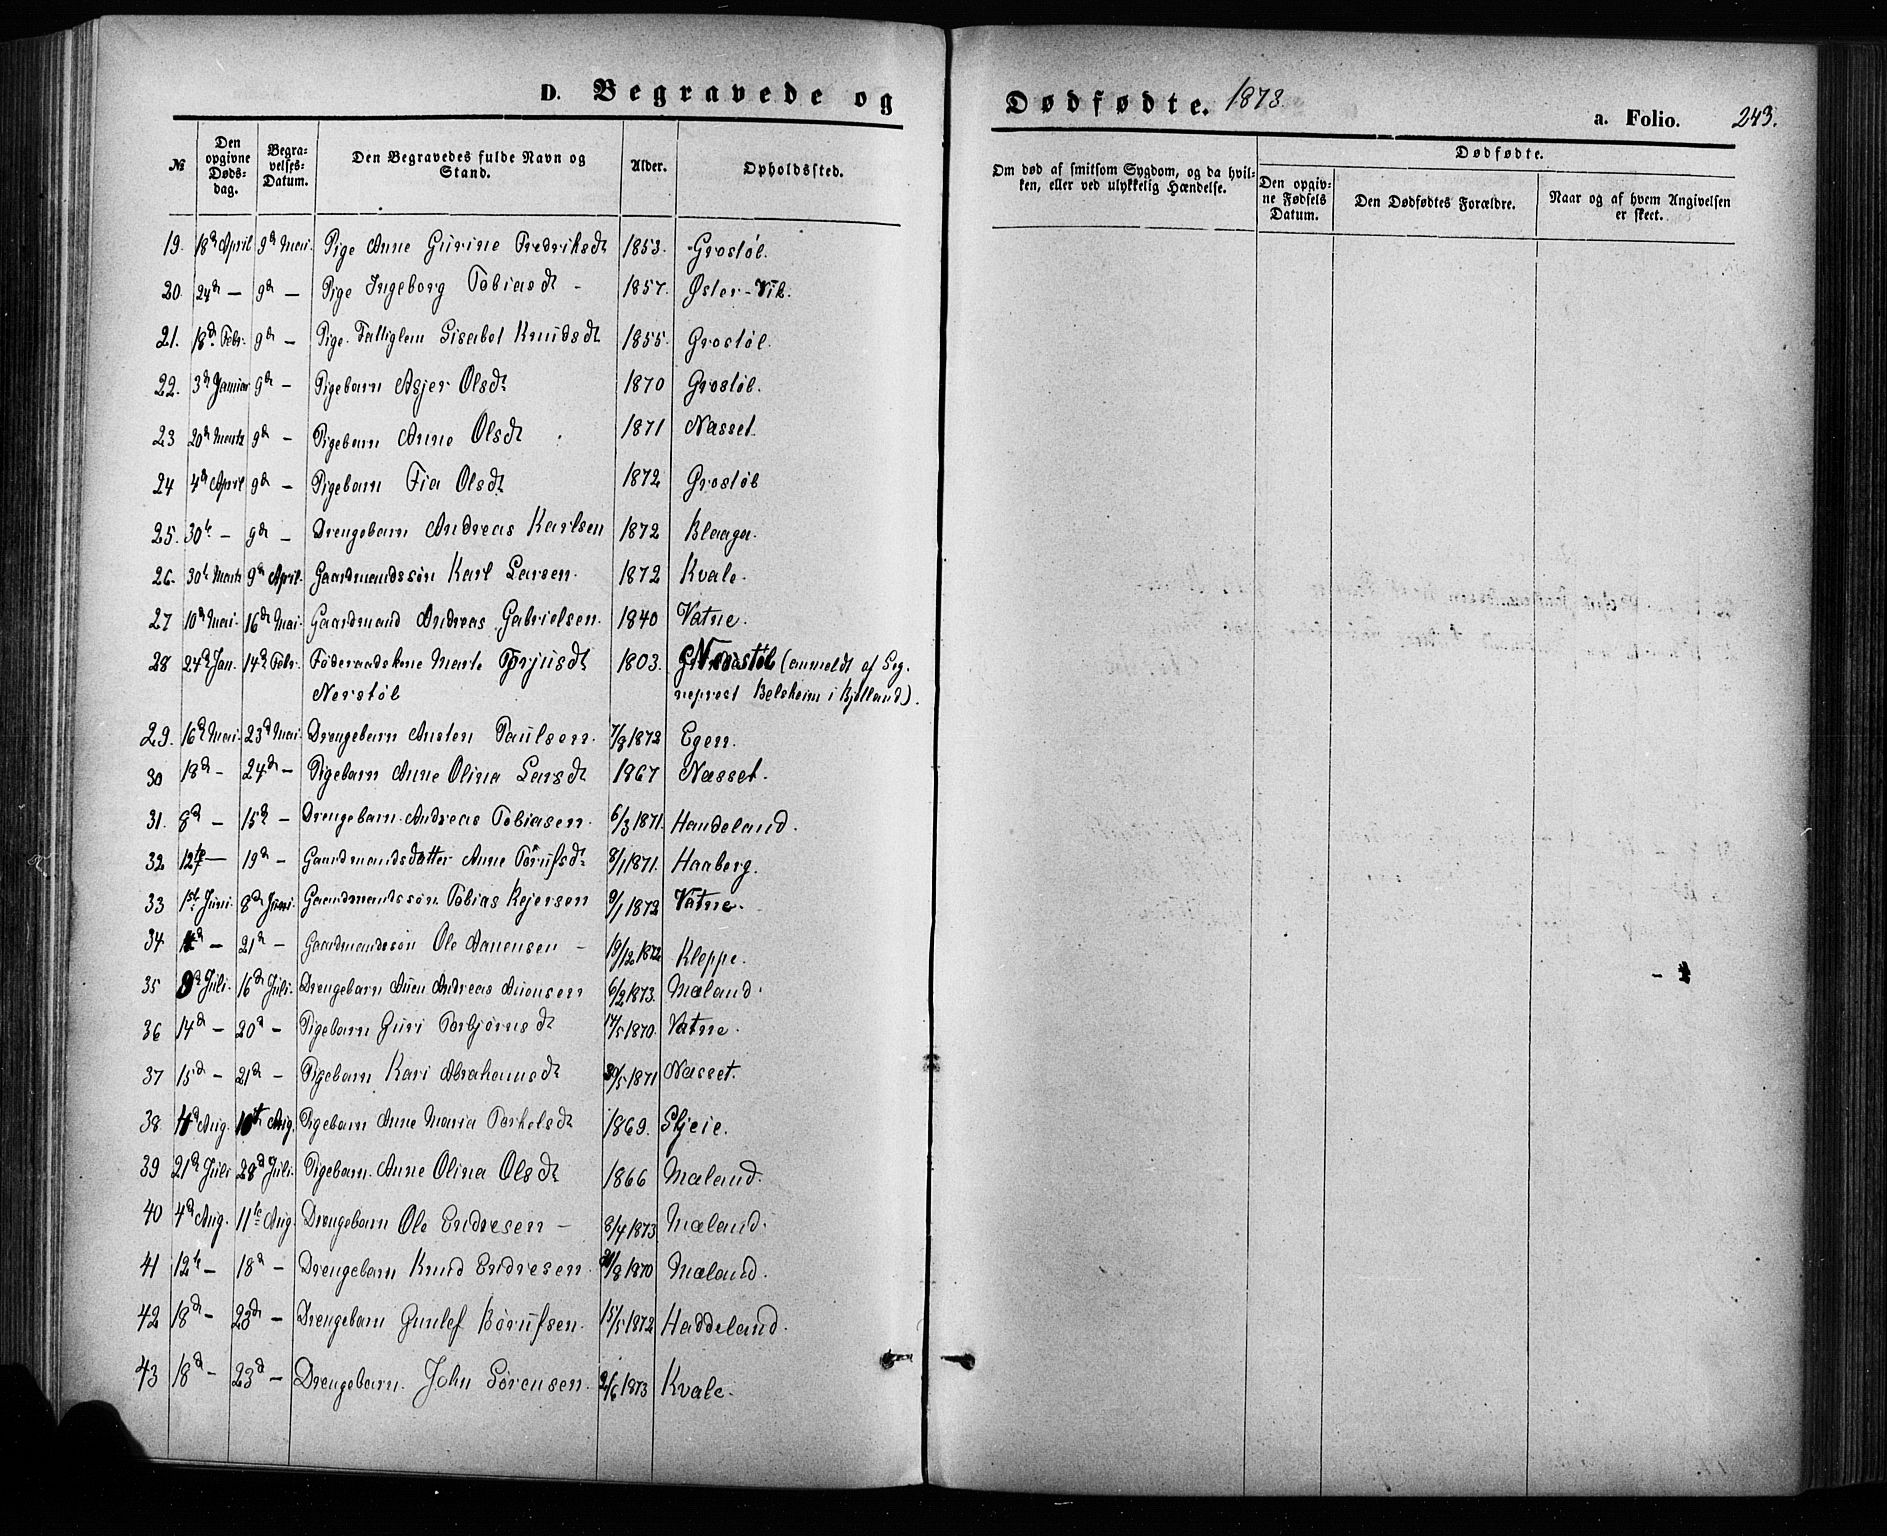 D. Begravede og Dødfødte. 1873. a. Folio. 243.
№ | Den opgivne Døds-dag. | Begra-velses-Datum. | Den Begravedes fulde Navn og Stand. | Alder. | Opholdssted. | Om død af smitsom Sygdom, og da hvil-ken, eller ved ulykkelig Hændelse. | Dødfødte. | Den opgiv-ne Fødsels Datum. | Den Dødfødtes Forældre. | Naar og af hvem Angivelsen er skeet.
19. 18de April 9de Mai. Pige Anne Gurine Fredriksdt 1853. Grostøl.
20. 24de — 9de — Pige Ingeborg Tobiasdt - 1857. Øster-Vik.
21. 18de Febr. 9de — Pige. Fattiglem Lisabet Knudsdt 1855. Grostøl.
22. 3de Januar 9de — Pigebarn Asjer Olsdt 1870 Grostøl.
23 20de Marts 9de — Pigebarn Anne Olsdt 1871 Næsset.
24 4de April 9de — Pigebarn Tia Olsdt 1872 Grostøl
25. 30te — 9de — Drengebarn Andreas Karlsen 1872 Blaaga.
26. 30te Marts 9de April. Gaardmandssøn Karl Larsen. 1872 Kvale.
27 10de Mai. 16de Mai. Gaardmand Andreas Gabrielsen. 1840 Vatne.
28 24de Jan. 14de Febr. Føderaadskone Marte Torjusdt 1803. Nordstøl (anmeldt af Sog.
Nerstøl neprest Belsheim i Bjelland).
29. 16de Mai. 23de Mai. Drengebarn Austen Paulsen. 7/8 1872 Egen.
30 18de - 24de — Pigebarn Anne Olina Larsdt 1867 Næsset.
31. 8de — 15de — Drengebarn Andreas Tobiasen. 6/3 1871. Handeland.
32 12te — 19de — Gaardmandsdatter Anne Børufsdt 8/1 1871. Haaberg.
33 1ste Juni. 8de Juni. Gaardmandssøn Tobias Rejersen 9/1 1872 Vatne.
34 — 21de — Gaardmandssøn Ole Aanensen — 19/12 1872 Kleppe.
35 9de Juli. 16de Juli. Drengebarn Auen Andreas Auensen 6/2 1873. Mæland.
36 14de - 20de - Pigebarn Guri Torbjørnsdt 17/5 1870. Vatne.
37 15de - 21de - Pigebarn Kari Abrahamsdt 30/5 1871 Næsset.
38. 4de Aug. 10de Aug. Pigebarn Anne Maria Torkelsdt 1869. Skjeie.
39 21de Juli 28de Juli. Pigebarn. Anne Olina Olsdt 1866 Mæland.
40 4de Aug. 11te Aug. Drengebarn Ole Endresen - 8/4 1873 Mæland.
41 12te - 18de - Drengebarn Knud Endresen /8 1870 Mæland.
42 18de - 23de — Drengebarn Gunlef Børufsen. 15/5 1872 Haddeland.
43 18de - 23de — Drengebarn. John Sørensen. 2/6 1873 Kvale.